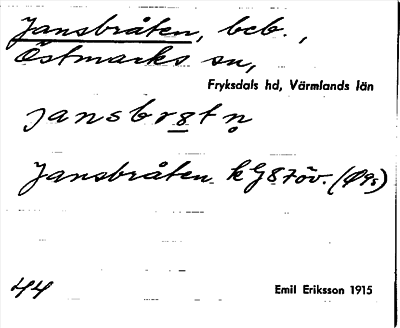 Jansbråten, bcb.,
Östmarks sn,
Fryksdals hd, Värmlands län
jansbr8tṇ
Jansbråten kG87öv. (Ø9s)
44
Emil Eriksson 1915